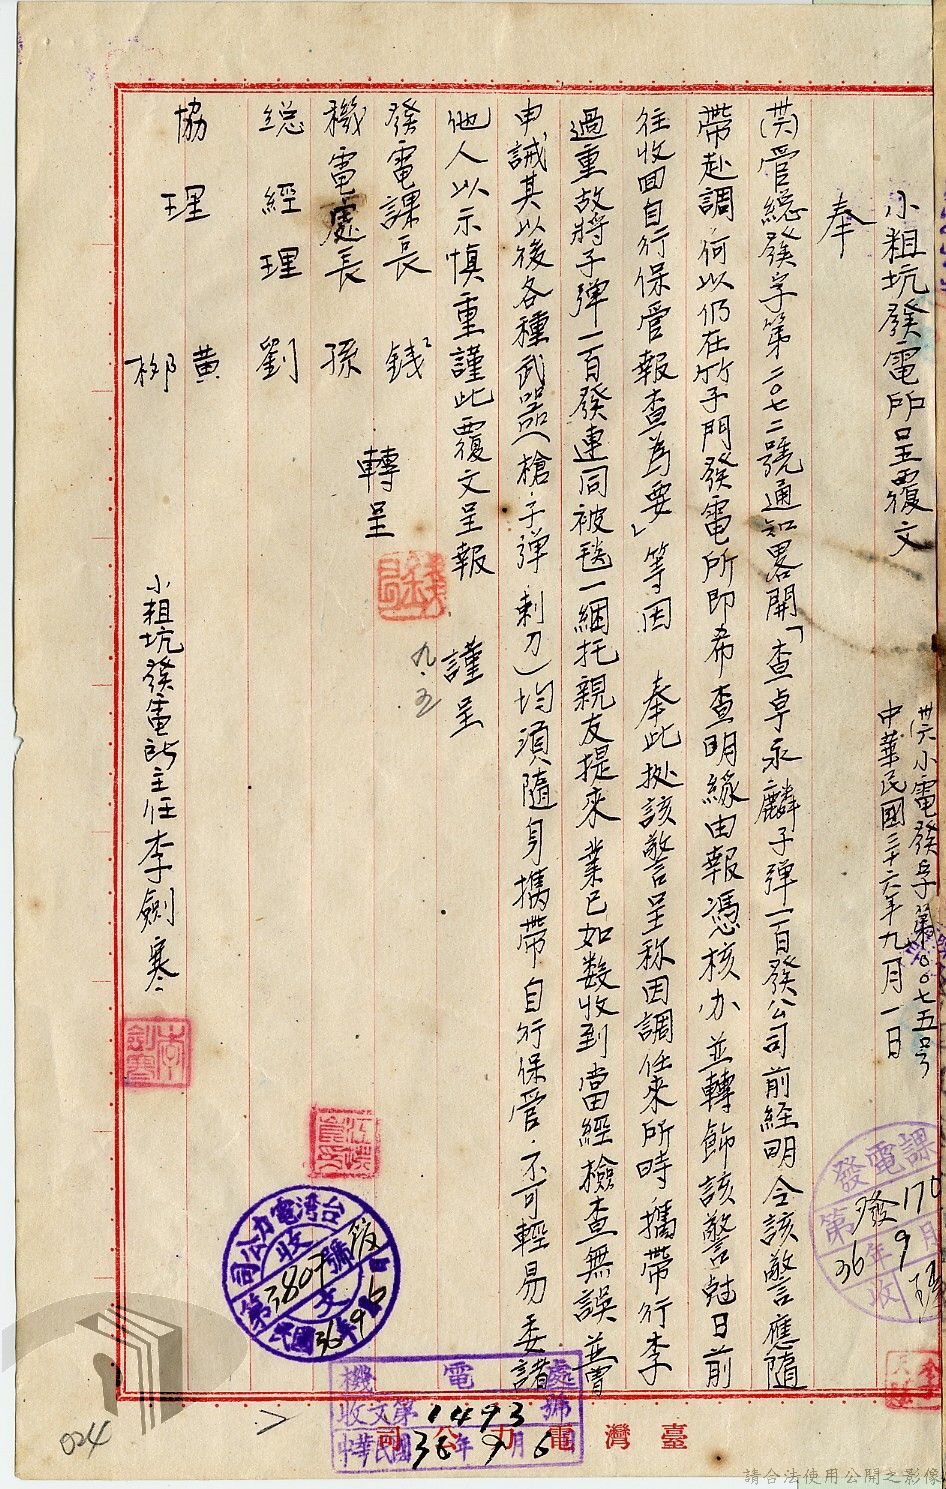 小粗坑發電所呈覆文
(卅六)小電發字第〇〇七五号
中華民國三十六年九月一日
奉
(卅六)管總發字第二〇七二號通知畧開「查卓永麟子彈一百發公司前経明令該警應隨
帶赴調何以仍在竹子門發電所即希查明緣由報憑核办並轉飭該警尅日前
往收回自行保管報查為要」等因 奉此 據該警呈称因調任來所時攜帶行李
過重故將子彈一百發連同被毯一綑托親友提來業已如数收到當經檢查無誤並
申誡其以後各種武器(槍子彈刺刀)均須隨身攜帶自行保管不可輕易委諸
他人以示慎重謹此覆文呈報 謹呈
發電課長 錢 轉呈
機電處長 孫
總經理 劉
協理 黃
柳
小粗坑發電所主任李劍寒
李劍寒
九.五
發電課
第 發170
36年9月
收
台湾電力公司
收文
第3807號
民國36年9月6日
機電處
收文第1493號
中華民國36年9月6
臺灣電力公司
024
請合法使用公開之影像